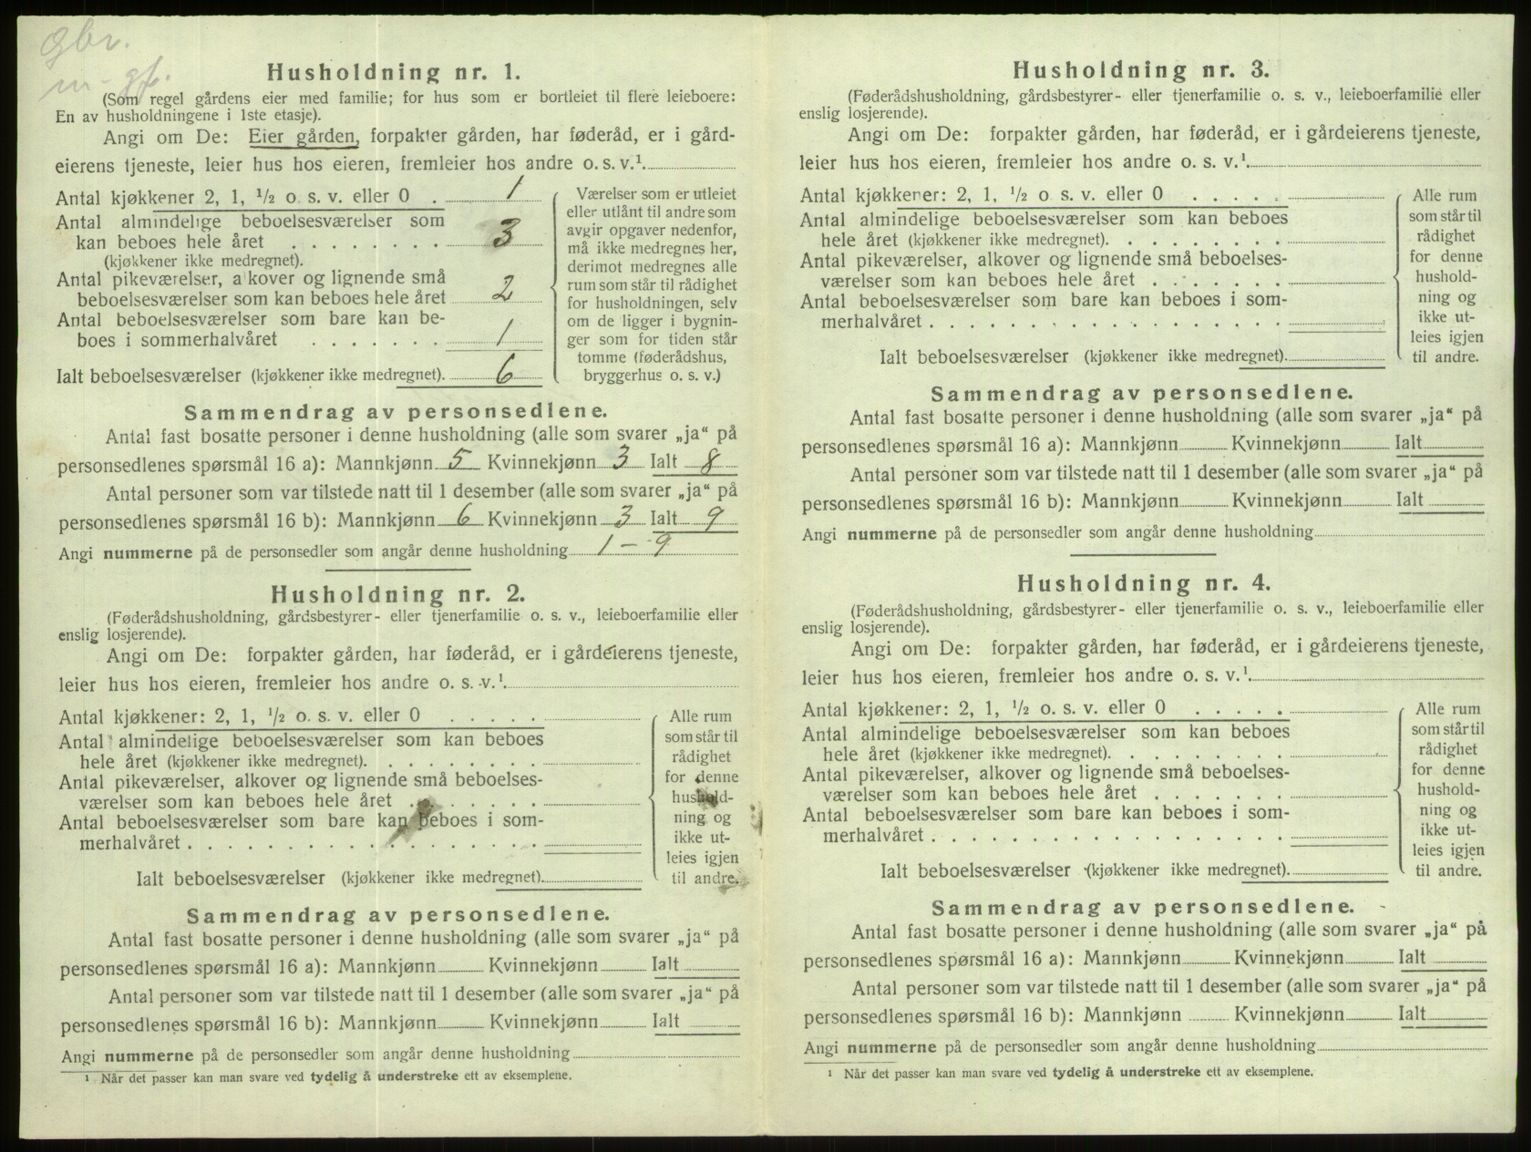 gbr.
m - gf.
Husholdning nr. 1.
(Som regel gårdens eier med familie; for hus som er bortleiet til flere leieboere:
En av husholdningene i 1ste etasje).
Angi om De: Eier gården, forpakter gården, har føderåd, er i gård-
eierens tjeneste, leier hus hos eieren, fremleier hos andre o. s. v.¹
Antal kjøkkener 2, 1, ½ o s. v. eller 0 . 1
Antal almindelige beboelsesværelser som
kan beboes hele året . . . . . . . . 3
(kjøkkener ikke medregnet).
Antal pikeværelser, a kover og lignende små
beboelsesværelser som kan beboes hele året 2
Antal beboelsesværelser som bare kan be-
boes i sommerhalvåret . . . . . . . 1
Ialt beboelsesværelser (kjøkkener ikke medregnet). 6
Værelser som er utleiet
eller utlånt til andre som
avgir opgaver nedenfor,
må ikke medregnes her,
derimot medregnes alle
rum som står til rådighet
for husholdningen, selv
om de ligger i bygnin-
ger som for tiden står
tomme (føderådshus,
bryggerhus o. s. v.)
Sammendrag av personsedlene.
Antal fast bosatte personer i denne husholdning (alle som svarer „ja“ på
personsedlenes spørsmål 16 a): Mannkjønn 5 Kvinnekjønn 3 Ialt 8
Antal personer som var tilstede natt til 1 desember (alle som svarer „ja“ på
personsedlenes spørsmål 16 b): Mannkjønn 6 Kvinnekjønn 3 Ialt 9
Angi nummerne på de personsedler som angår denne husholdning 1 – 9
Husholdning nr. 2.
(Føderådshusholdning, gårdsbestyrer- eller tjenerfamilie o. s. v., leieboerfamilie eller
enslig losjerende).
Angi om De: forpakter gården, har føderåd, er i gårdeierens tjeneste,
leier hus hos eieren, fremleier hos andre o. s. v.¹
Antal kjøkkener: 2, 1, ½ o. s. v. eller 0 . . . . .
Antal almindelige beboelsesværelser som kan beboes
hele året (kjøkkener ikke medregnet). . . . . . . . .
Antal pikeværelser, alkover og lignende små beboelses-
værelser som kan beboes hele året . . . . . . .
Antal beboelsesværelser som bare kan beboes i som-
merhalvåret . . . . . . . . . . . . . . . . .
Ialt beboelsesværelser (kjøkkener ikke medregnet).
Alle rum
som står til
rådighet
for denne
hushold-
ning og
ikke ut-
leies igjen
til andre.
Sammendrag av personsedlene.
Antal fast bosatte personer i denne husholdning (alle som svarer „ja“ på
personsedlenes spørsmål 16 a): Mannkjønn Kvinnekjønn Ialt
Antal personer som var tilstede natt til 1 desember (alle som svarer „ja“ på
personsedlenes spørsmål 16 b): Mannkjønn Kvinnekjønn Ialt
Angi nummerne på de personsedler som angår denne husholdning
¹ Når det passer kan man svare ved tydelig å understreke ett av eksemplene.
Husholdning nr. 3.
(Føderådshusholdning, gårdsbestyrer- eller tjenerfamilie o. s. v., leieboerfamilie eller
enslig losjerende).
Angi om De: forpakter gården, har føderåd, er i gårdeierens tjeneste,
leier hus hos eieren, fremleier hos andre o. s. v.¹
Antal kjøkkener: 2, 1, ½ o. s. v. eller 0 . . . . .
Antal almindelige beboelsesværelser som kan beboes
hele året (kjøkkener ikke medregnet). . . . . . . . .
Antal pikeværelser, alkover og lignende små beboelses-
værelser som kan beboes hele året . . . . . . .
Antal beboelsesværelser som bare kan beboes i som-
merhalvåret . . . . . . . . . . . . . . . . .
Ialt beboelsesværelser (kjøkkener ikke medregnet).
Alle rum
som står til
rådighet
for denne
hushold-
ning og
ikke ut-
leies igjen
til andre.
Sammendrag av personsedlene.
Antal fast bosatte personer i denne husholdning (alle som svarer „ja“ på
personsedlenes spørsmål 16 a): Mannkjønn Kvinnekjønn Ialt
Antal personer som var tilstede natt til 1 desember (alle som svarer „ja“ på
personsedlenes spørsmål 16 b): Mannkjønn Kvinnekjønn Ialt
Angi nummerne på de personsedler som angår denne husholdning
Husholdning nr. 4.
(Føderådshusholdning, gårdsbestyrer- eller tjenerfamilie o. s. v., leieboerfamilie eller
enslig losjerende).
Angi om De: forpakter gården, har føderåd, er i gårdeierens tjeneste,
leier hus hos eieren, fremleier hos andre o. s. v.¹
Antal kjøkkener: 2, 1, ½ o. s. v. eller 0 . . . . .
Antal almindelige beboelsesværelser som kan beboes
hele året (kjøkkener ikke medregnet). . . . . . . . .
Antal pikeværelser, alkover og lignende små beboelses-
værelser som kan beboes hele året . . . . . . .
Antal beboelsesværelser som bare kan beboes i som-
merhalvåret . . . . . . . . . . . . . . . . .
Ialt beboelsesværelser (kjøkkener ikke medregnet).
Alle rum
som står til
rådighet
for denne
hushold-
ning og
ikke ut-
leies igjen
til andre.
Sammendrag av personsedlene.
Antal fast bosatte personer i denne husholdning (alle som svarer „ja“ på
personsedlenes spørsmål 16 a): Mannkjønn Kvinnekjønn Ialt
Antal personer som var tilstede natt til 1 desember (alle som svarer „ja“ på
personsedlenes spørsmål 16 b): Mannkjønn Kvinnekjønn Ialt
Angi nummerne på de personsedler som angår denne husholdning
¹ Når det passer kan man svare ved tydelig å understreke ett av eksemplene.